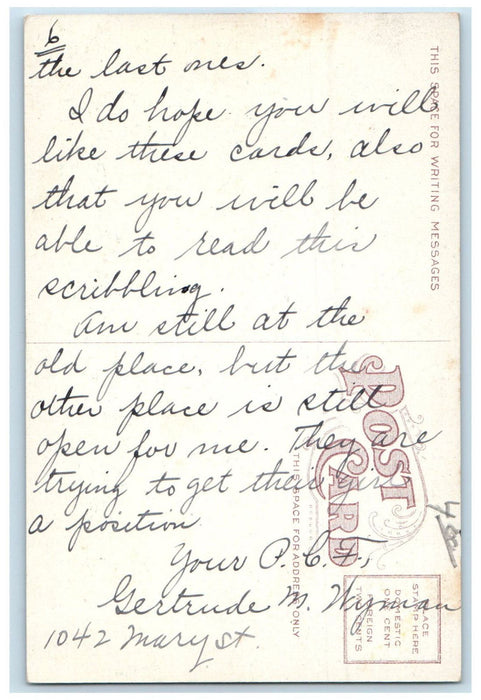 6
the last ones.
I do hope you will
like these cards, also
that you will be
able to read this
scribbling.
Am still at the
old place, but the
other place is still
open for me. They are
trying to get their girl
a position
Your P. C. F.,
Gertrude M. Wyman
1042 Mary St.
THIS SPACE FOR WRITING MESSAGES
POST CARD
THIS SPACE FOR ADDRESS ONLY
PLACE
STAMP HERE
DOMESTIC
ONE CENT
FOREIGN
TWO CENTS